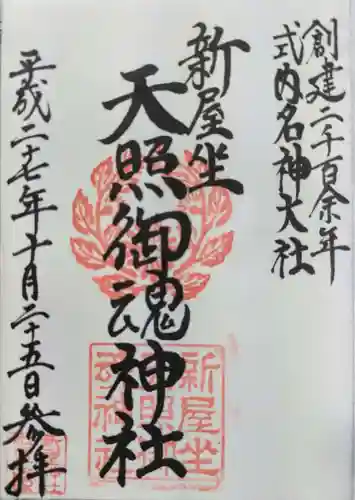 創建二千百余年
式内名神大社
新屋坐
天照御魂神社
平成二十七年十月二十五日参拝